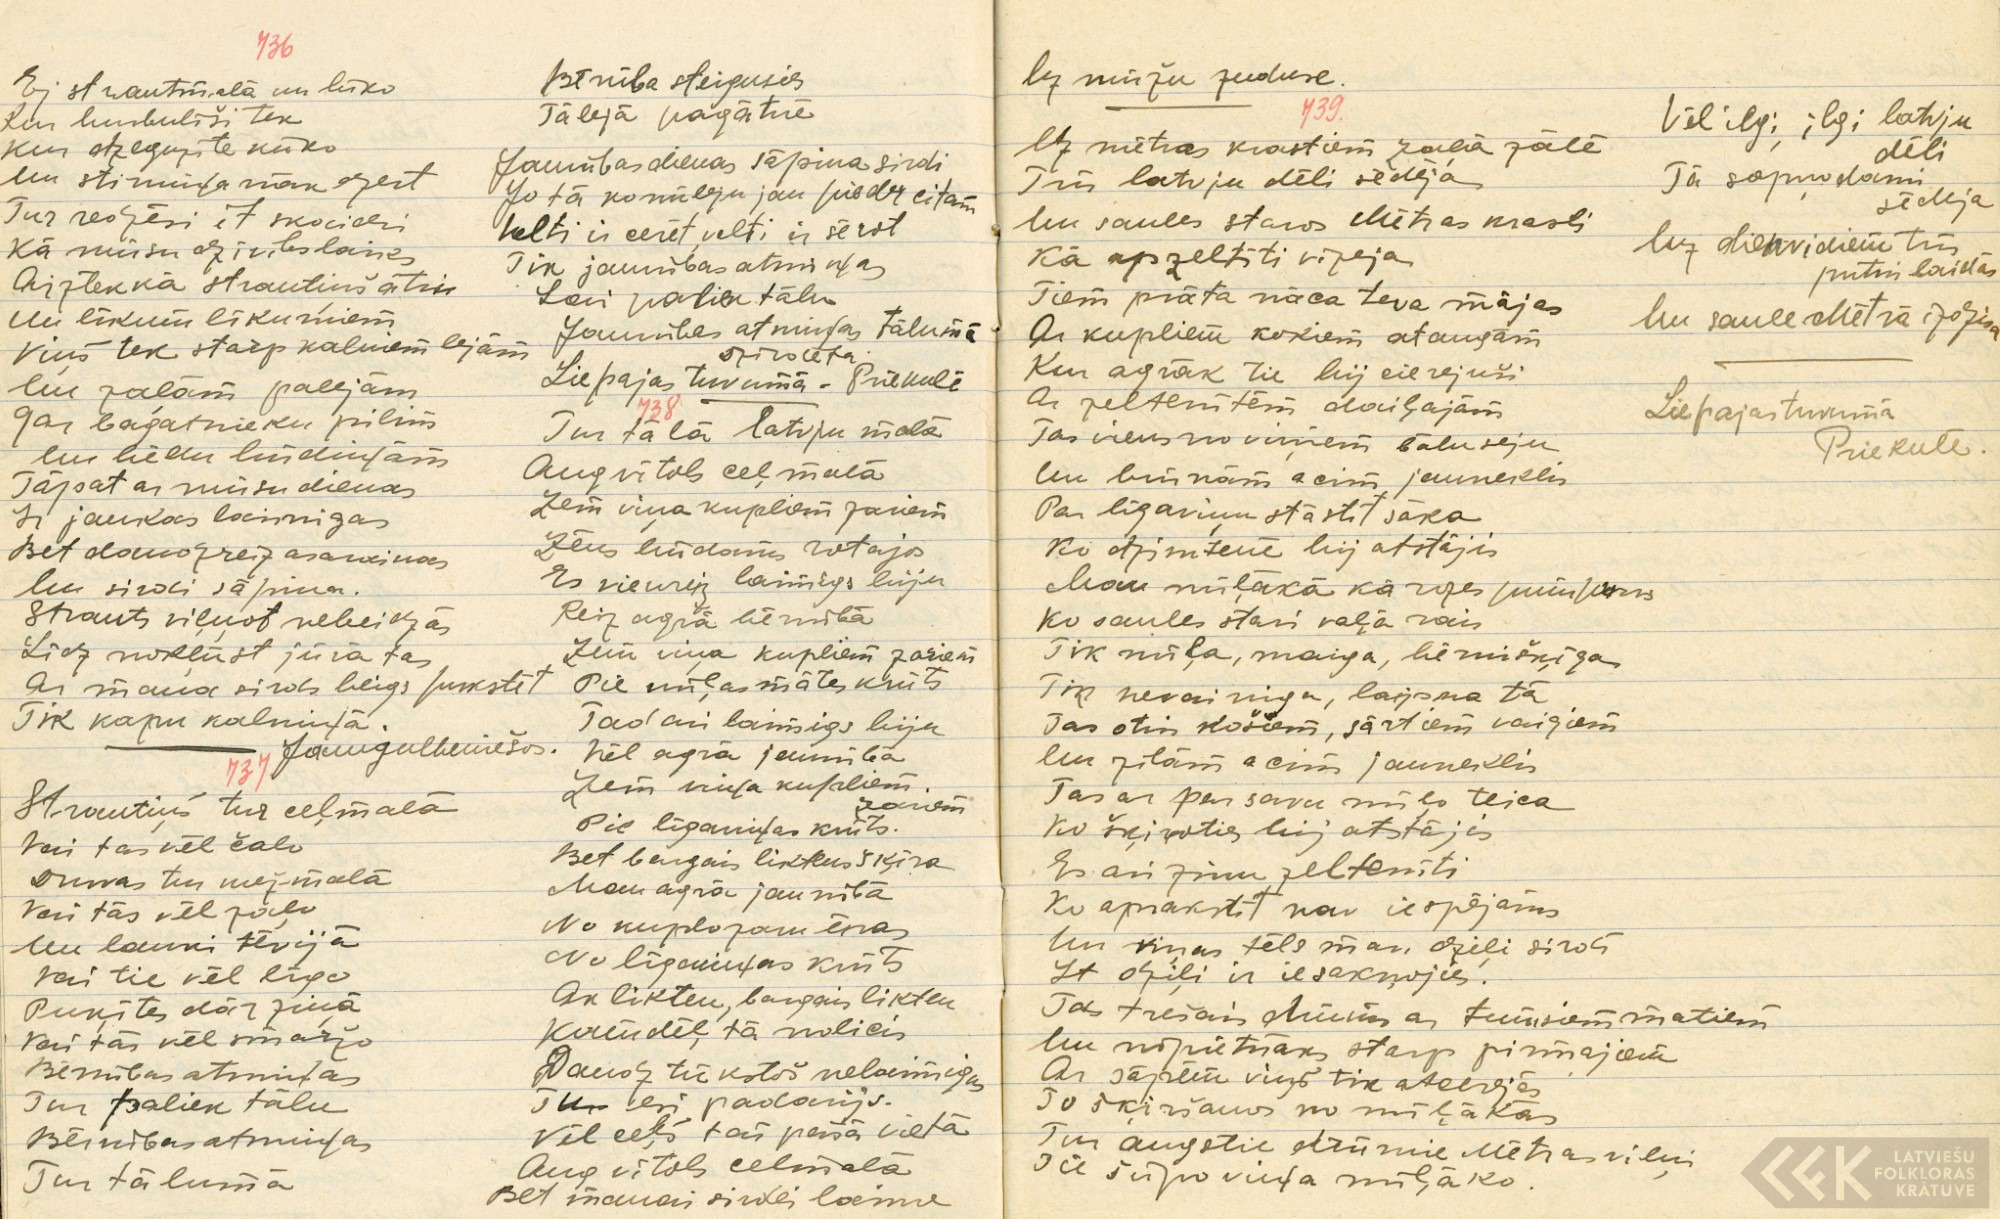 736
Ej strautmalā un lūko
Kur burbulīši tek
Kur dzeguzīte kūko
Un stirniņa nāk dzert
Tur redzēsi it skaidri
Kā mūsu dzīvības laiks
Aiztek kā strautiņš ātri
Un līkum līkumiem
Viņš tek starp kalniem lejām
Un zaļām palejām
Gar bagātnieku pilīm
Un bēdu būdiņām
Tāpat ar mūsu dienas
Ir jaukas laimīgas
Bet daudzreiz asarainas
Un sirdi sāpina.
Strauts viļņot nebeidzās
Līdz nokļūst jūrā tas
Ar mana sirds beigs pukstēt
Tik kapu kalniņā.
Jaungulbeniešos.
737
Strautiņš tur ceļmalā
Vai tas vēl čalo
Druvas tur mežmalā
Vai tās vēl zaļo
Un lauki tēvijā
Vai tie vēl līgo
Puķītes dārziņā
Vai tās vēl smaržo
Bērnības atmiņas
Tur paliek tālu
Bērnības atmiņas
Tur tālumā
Bērnība steigusies
Tālejā pagātnē
Jaunības dienas sāpina sirdi
Jo tā ko mīlēju jau pieder citam
Velti ir cerēt, velti ir sērot
Tik jaunības atmiņas
Lai paliek tālu
Jaunības atmiņas tālumā
dziedēta.
Liepajas tuvumā - Priekulē
738
Tur tālā latvju malā
Aug vītols ceļmalā
Zem viņa kupliem zariem
Zēns būdams rotaļos
Es vienreiz laimīgs biju
Reiz agrā bērnībā
Zem viņa kupliem zariem
Pie mīļas mātes krūts
Tad ari laimīgs biju
Vēl agrā jaunībā
Zem viņa kupliem
zariem
Pie līgaviņas krūts.
Bet bargais liktens šķīra
Man agrā jaunībā
No kuplo zaru ēnas
No līgaviņas krūts
Ak likten, bargais likten
Kamdēļ tā nolicis
Daudz tūkstoš nelaimīgus
Tu esi padarījs.
Vēl ceļš tai pašā vietā
Aug vītols ceļmalā
Bet manai sirdei laime
Uz mūžu zuduse.
739.
Uz mētras krastiem zaļā zālē
Trīs latvju dēli sēdēja
Un saules staros Mētras krasti
Kā apzeltīti vizēja
Tiem prātā nāca tēva mājas
Ar kupliem kokiem ataugām
Kur agrāk tie bij ciemjuši
Ar zeltenītēm daiļajām
Tas viens no viņiem bālu seju
Un brūnām acīm jauneklis
Par līgaviņu stāstīt sāka
Ko dzimtenē bij atstājis
Man mīļākā kā rozes pumpurs
Ko saules stari vaļā rais
Tik mīļa, maiga, bērnišķīga
Tik nevainīga, laipna tā
Tas otrs košiem, sārtiem vaigiem
Un zilām acīm jauneklis
Tas ar par savu mīļo teica
Ko šķiroties bij atstājis
Es ari zinu zeltenīti
Ko aprakstīt nav iespējams
Un viņas tēls man dziļi sirdī
It dziļi ir iesakņojies.
Tas trešais drūms ar tumsiem matiem
Un nopietnāks starp pirmajiem
Ar sāpēm viņš tik atcerējās
To šķiršanos no mīļākās
Tur augstie drūmie Mētras viļņi
Tie šūpo viņa mīļāko.
Vēl ilgi, ilgi latvju
dēli
Tā sapņodami
sēdēja
Uz dienvidiem trīs
putni laidās
Un saule Mētrā izdzisa
Liepajas tuvumā
Priekulē.
LATVIEŠU
FOLKLORAS
KRĀTUVE